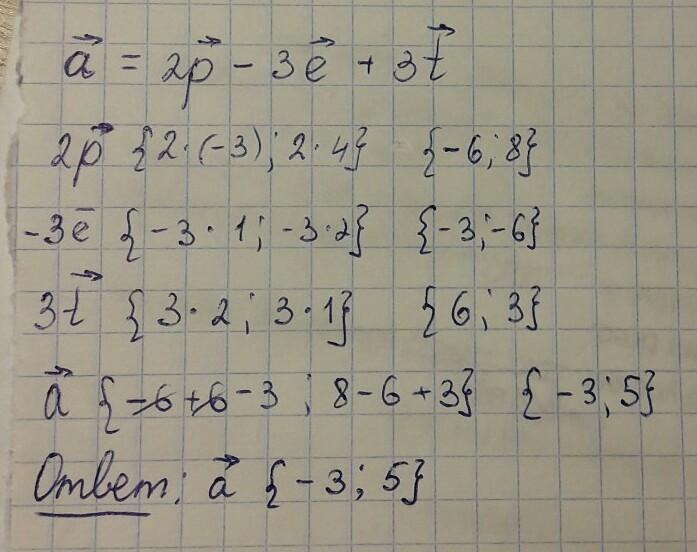 a⃗ = 2p⃗ - 3e⃗ + 3t⃗
2p⃗ {2·(-3); 2·4} {-6; 8}
-3e̅ {-3·1; -3·2} {-3; -6}
3t⃗ {3·2; 3·1} {6; 3}
a⃗ {-6+6-3; 8-6+3} {-3; 5}
Ответ: a⃗ {-3; 5}